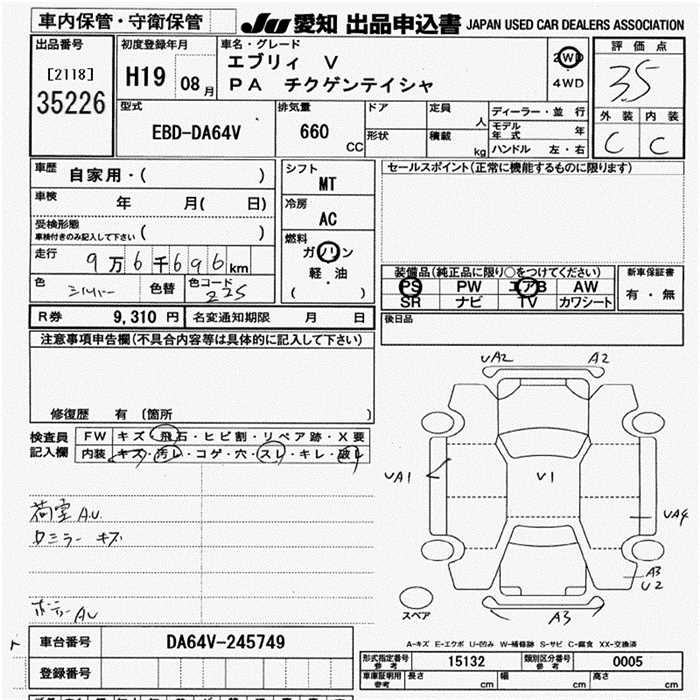 車内保管・守衛保管
Ju 愛知 出品申込書 JAPAN USED CAR DEALERS ASSOCIATION
出品番号
[2118]
35226
初度登録年月
H19 08月
車名・グレード
エブリィ V
PA チクゲンテイシャ
2WD
4WD
評価点
3.5
外装 内装
C C
型式
EBD-DA64V
排気量
660
CC
ドア
形状
定員
人
積載
kg
ディーラー・並行
モデル年式 年
ハンドル 左・右
車歴 自家用・( )
車検 年 月( 日)
受検形態
車検付きのみ記入して下さい ( )
走行 9万6千696km
色 シルバー 色替 色コード
22S
シフト
MT
冷房
AC
燃料
ガソリン
軽・油
( )
セールスポイント(正常に機能するものに限ります)
装備品(純正品に限り○をつけてください)
PS PW エアB AW
SR ナビ TV カワシート
新車保証書
有・無
後日品
R券 9,310円 名変通知期限 月 日
注意事項申告欄(不具合内容等は具体的に記入して下さい)
修復歴 有 〔箇所 〕
検査員
記入欄
FW キズ・飛石・ヒビ割・リペア跡・X要
内装 キズ・汚レ・コゲ・穴・スレ・キレ・破レ
荷室 A.U.
ロミラー キズ
ボデー AU
UA2 A2
UA1 U1 UA4
A3
U2
A3
スペア
A-キズ E-エクボ U-凹み W-補修跡 S-サビ C-腐食 XX-交換済
車台番号 DA64V-245749
登録番号
形式指定番号
参考
15132
類別区分番号
参考
0005
車庫証明用
参考
長さ cm 幅 cm 高さ cm